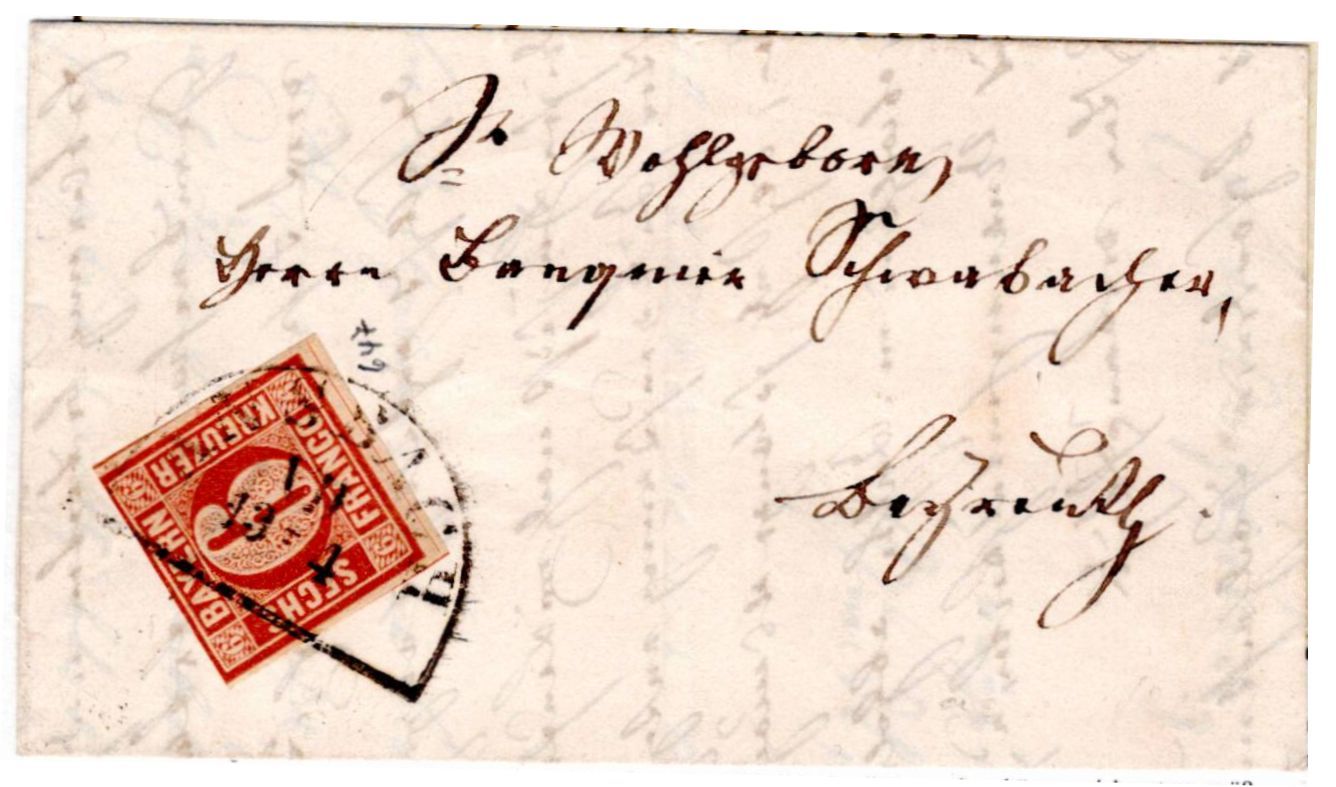 Sr Wohlgeboren
Herrn Banquier Schwabacher,
Bayreuth.
647
BAYERN
KREUZER
FRANCO
SECHS
6
6
6
13